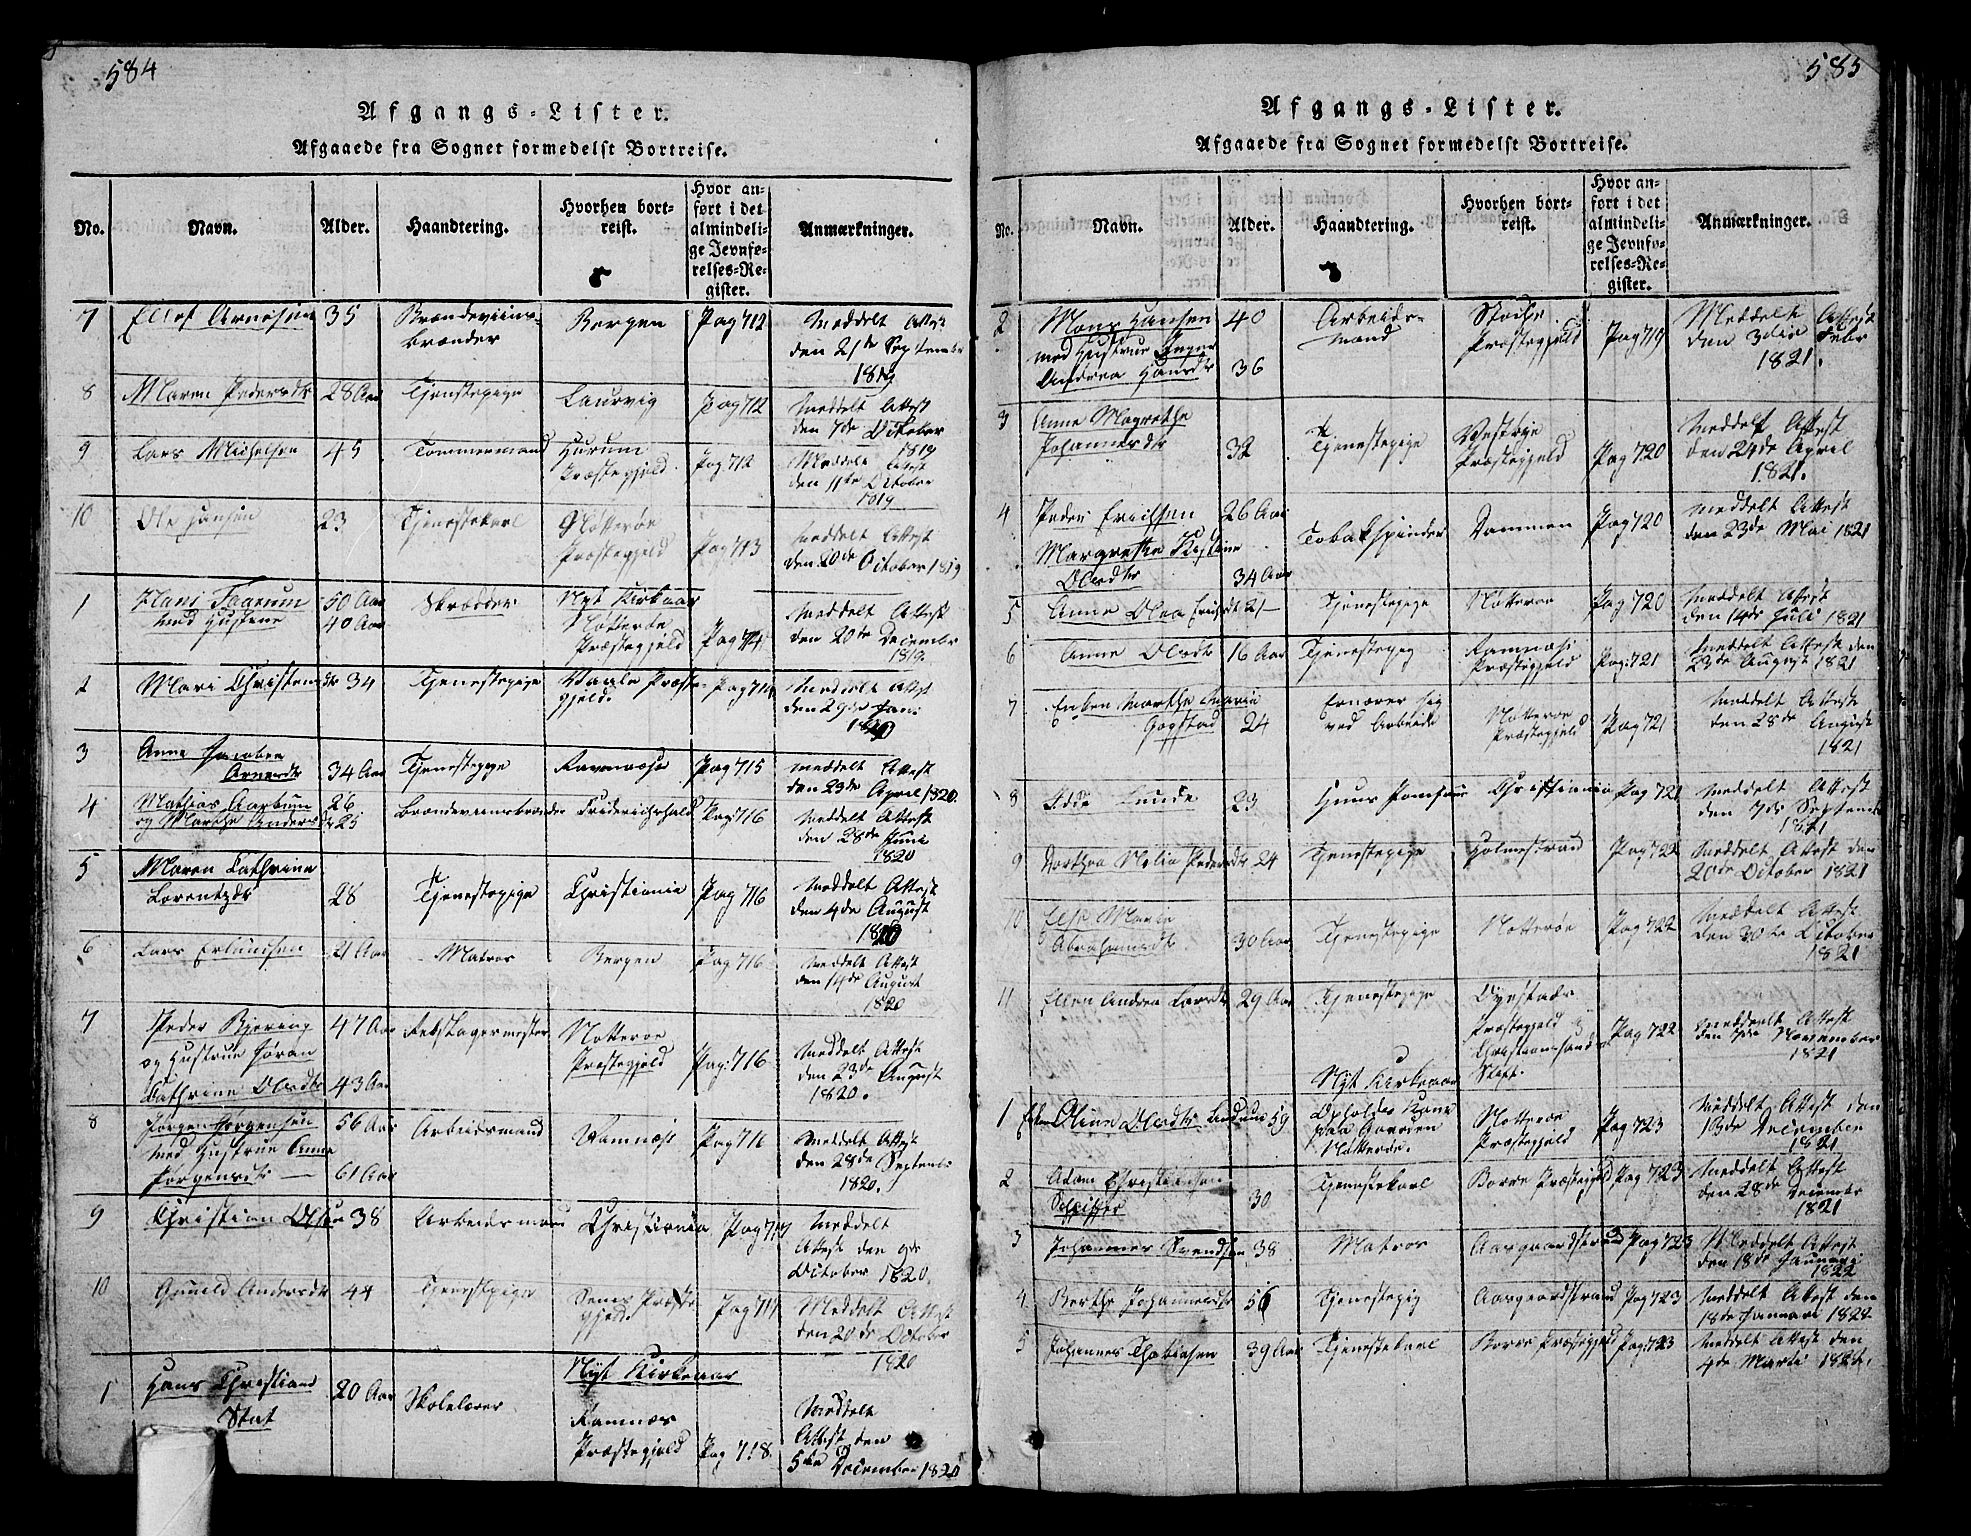 584
Afgangs-Lister.
Afgaaede fra Sognet formedelst Bortreise.
No. Navn. Alder. Haandtering. Hvorhen bortreist. Hvor anført i det almindelige Jevnførelses-Register. Anmærkninger.
7 Ellef Arnesen 35 Brændeviinsbrænder Bergen Pag 712 Meddelt Attest den 21de September 1819
8 Maren Pedersdtr 28 Aar Tjenstepige Laurvig Pag 712 Meddelt Attest den 7de October 1819
9 Lars Michelsen 45 Tømmermand Hurum Præstegjeld Pag 712 Meddelt Attest den 11te October 1819
10 Ole Hansen 23 Tjenestekarl Nøtterøe Præstegjeld Pag 713 Meddelt Attest den 20de October 1819
Nyt Kirkeaar
1 Hans Faarum med Hustrue 50 Aar 40 Aar Skrædder Nøtterøe Præstegjeld Pag 714 Meddelt Attest den 20de December 1819.
2 Mari Christensdtr 34 Tjenstepige Vaale Præstegjeld. Pag 714 Meddelt Attest den 29de Jani 1820
3 Anne Jacobea Arnesdtr 34 Aar Tjenstepige Ramnæse Pag 715 Meddelt Attest den 29de April 1820.
4 Mathias Aarbum og Marthe Andersdtr 26 25 Brændeviinsbrænder Friderichshald Pag 716 Meddelt Attest den 28de Juni 1820
5 Maren Cathrine Lorentzdtr 28 Tjenestepige Christiania Pag 716 Meddelt Attest den 4de August 1820
6 Lars Erlandsen 21 Aar Matros Bergen Pag 716 Meddelt Attest den 14de August 1820
7 Peder Bjering og Hustrue Søran Cathrine Olsdtr 47 Aar 43 Aar Nøtterøe Præstegjeld Pag: 716 Meddelt Attest den 23de August 1820.
8 Jørgen Jørgensen med Hustrue Anne Jørgensdtr 56 Aar 61 Aar Arbeidsmand Ramnæse Pag 716 Meddelt Attest den 28de Septenbr 1820.
9 Christian Olsen 38 Arbeidsmand Christiania Pag 717 Meddelt Attest den 9de October 1820.
10 Gunild Andersdtr 44 Tjenstepige Sems Præstegjeld. Pag 717 Meddelt Attest den 20de October 1820
Nyt Kirkeaar
1 Hans Christian Stat 20 Aar Skolelærer Ramnæs Præstegjeld Pag 718 Meddelt Attest den 5de December 1820
585
Afgangs-Lister.
Afgaaede fra Sognet formedelst Bortreise.
No. Navn. Alder. Haandtering. Hvorhen bortreist. Hvor anført i det almindelige Jevnførelses-Register. Anmærkninger.
2 Mons Hansen med Hustrue Inger Andrea Hansdtr 40 36 Arbeidsmand Stokke Præstegjeld Pag 719 Meddelt Attest den 3die Febr 1821.
3 Anne Magrethe Johannesdtr 32 Tjenestepige Præstegjeld Pag 720 Meddelt Attest den 24de April 1821.
4 Peder Erichsen Margrethe Kistine Olsdtr 26 Aar 34 Aar Tobakspinder Drammen Pag 720 Meddelt Attest den 23de Mai 1821
5 Anne Olea 21 Tjenstepige Nøtterøe Pag 720 Meddelt Attest den 14de Juli 1821
6 Anne Olsdtr 16 Aar Tjenestepig Ramnæse Præstegjeld Pag: 721 Meddelt Attest den 23de August 1821
7 Enken Marthe Marie Gogstad 24 Ernærer sig ved Arbeide Nøtterøe Præstegjeld Pag 721 Meddelt Attest den 28de August 1821
8 Lunde 23 Christiania Pag 721 Meddelt Attest den 7de Septembr 1821
9 Dorthea Malia Pedersdtr 24 Tjenestepige Holmestrand Pag 722 Meddelt Attest den 20de October 1821
10 Else Maria Abrahamsdtr 30 Aar Tjenestepige Nøtterøe Pag 722 Meddelt Attest den 30te October 1821
11 Ellen Andrea Larsdtr 29 Aar Tjenestepige Øyestads Præstegjeld i Christiansands Stift. Pag 722 Meddelt Attest den November 1821
Nyt Kirkeaar
1 Enken Oline Olsdtr 59 Opholdes Kone paa Gaarden Nøtterøe. Nøtterøe Præstegjeld Pag 723 Meddelt Attest den 13de December 1821
2 Adam Christensen 30 Tjenestekarl Borre Præstegjeld Pag 723 Meddelt Attest den 28de December 1821
3 Johannes Svendsen 38 Matros Aasgaardstrand Pag 723 Meddelt Attest den 18de Januari 1822
4 Berthe Johannesdtr 56 Tjenestepig Aasgaardstrand Pag 723 Meddelt Attest den 18de Januari 1822
5 Johannes Thobiesen 39 Aar Tjenestekarl Borre Præstegjeld Pag: 723 Meddelt Attest den 4de Marti 1822.